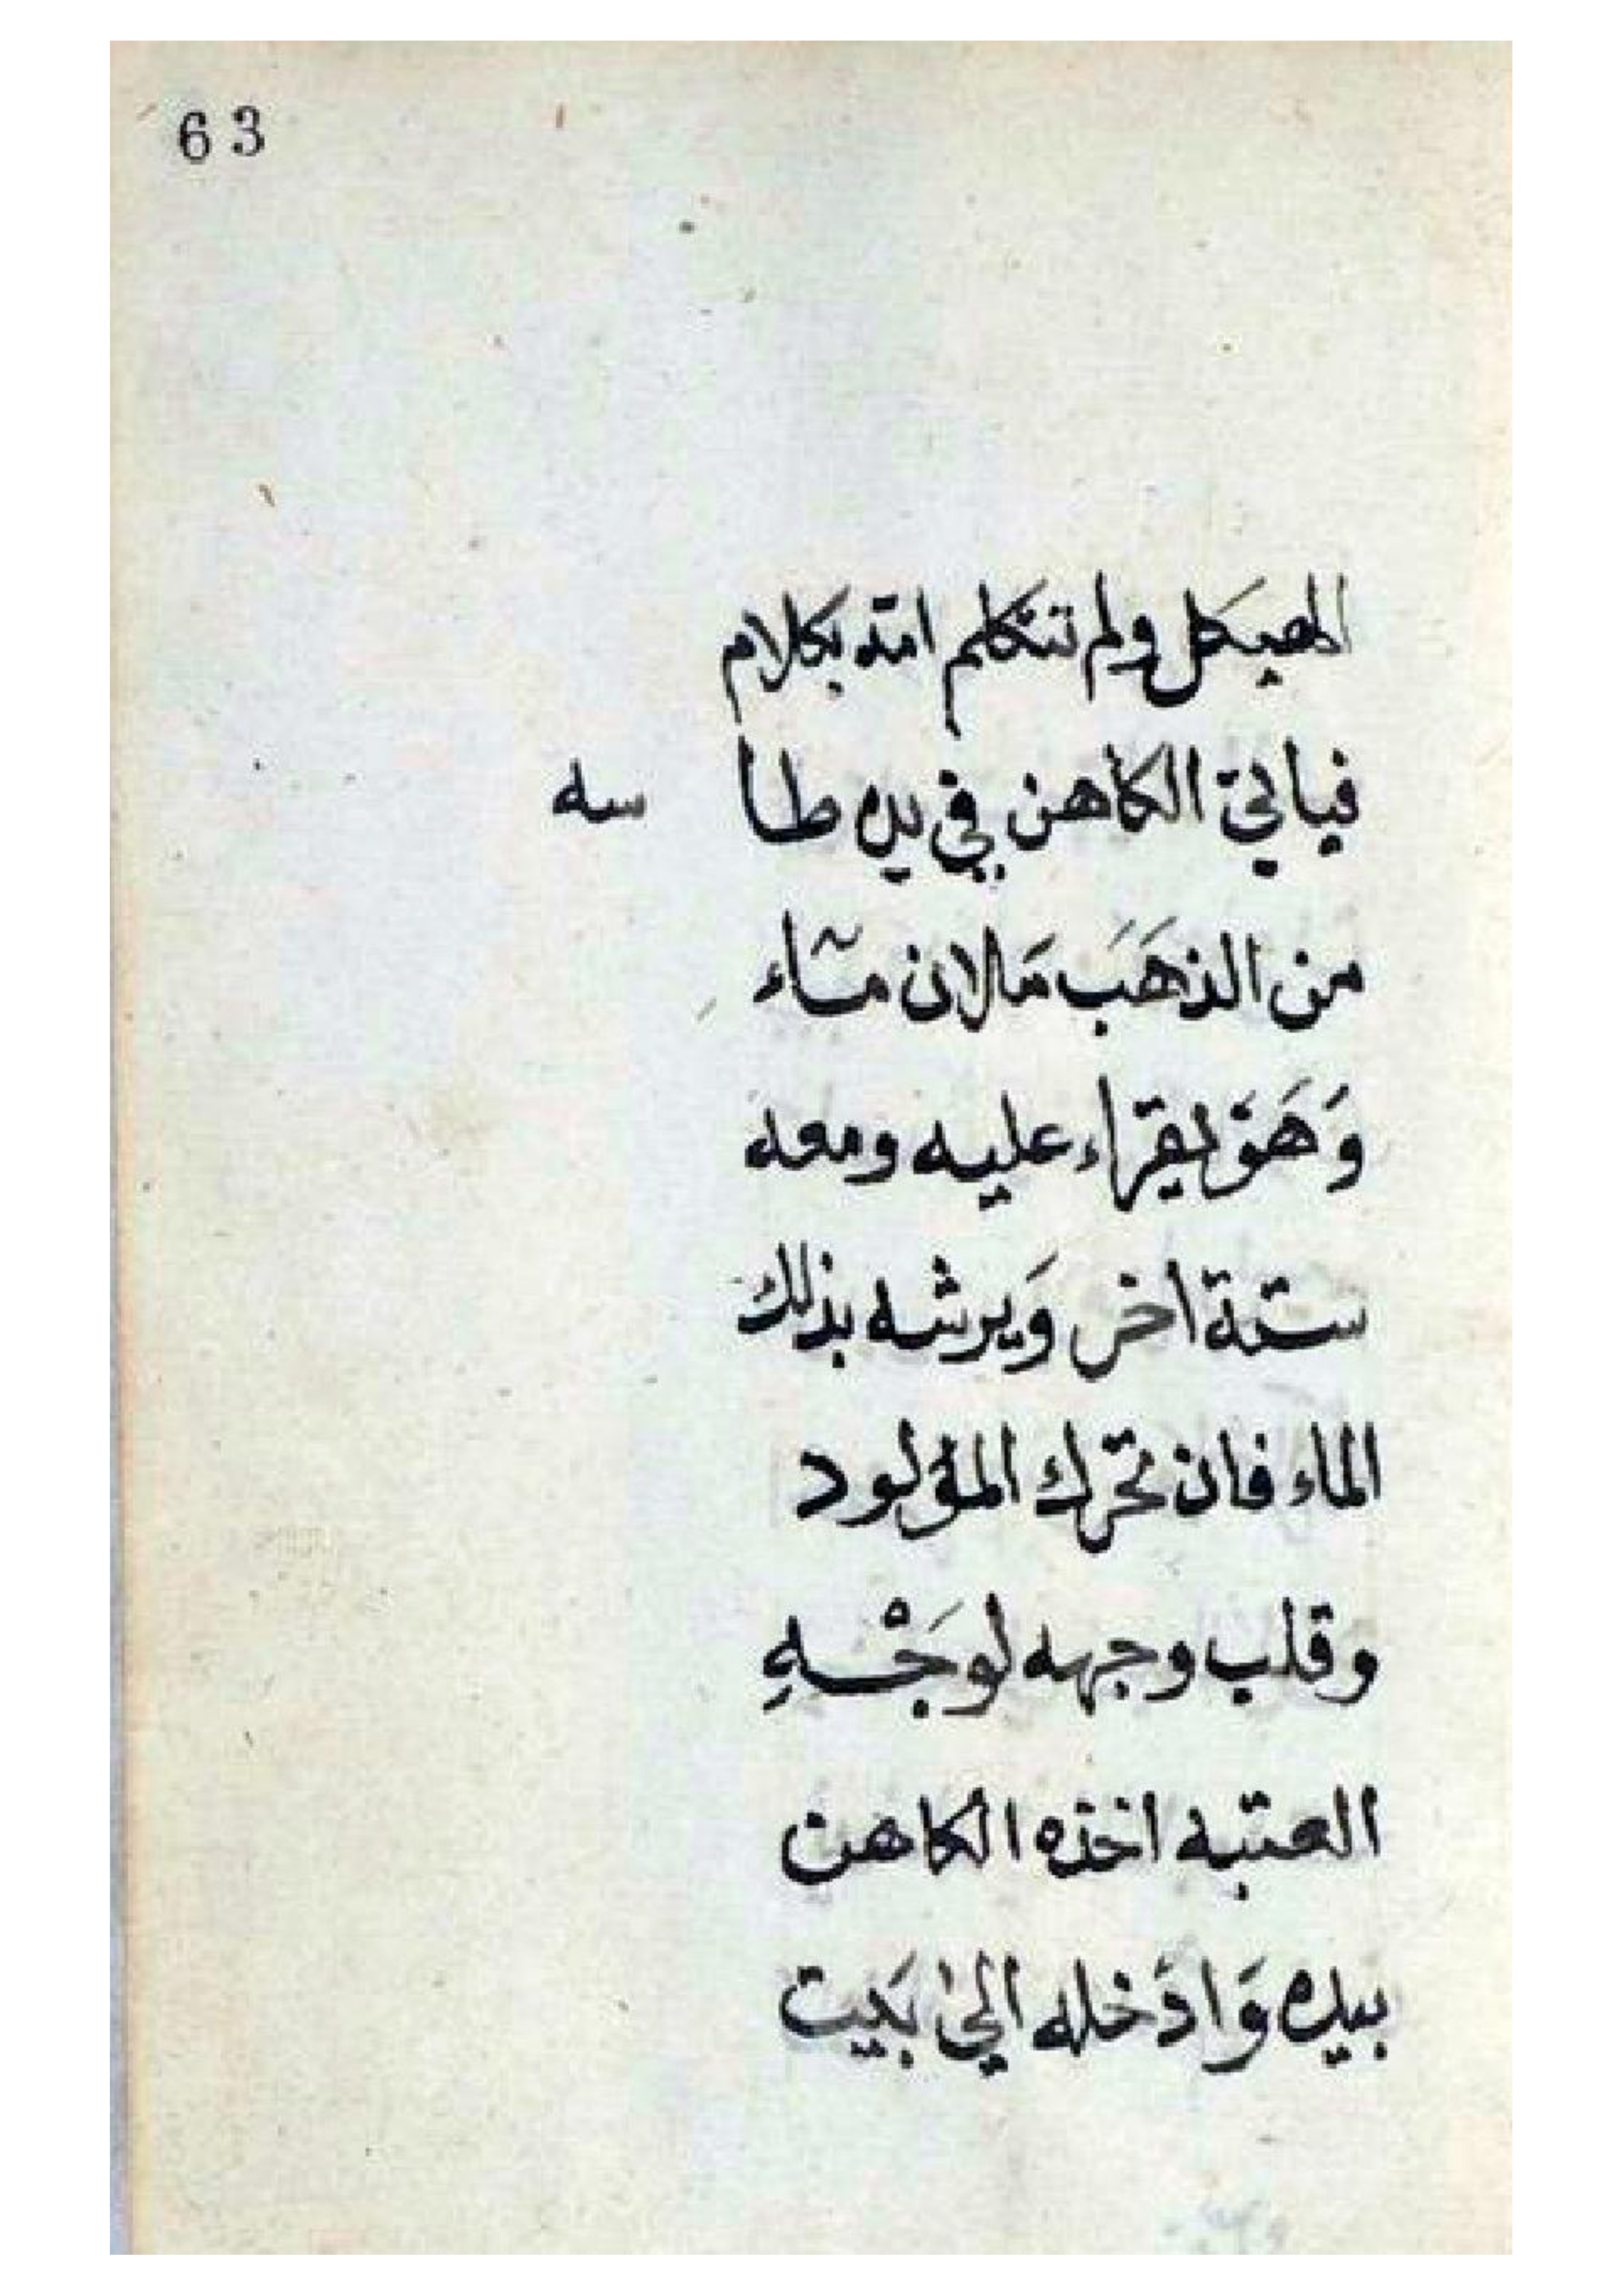 63
الهيكل ولم تتكلم امّه بكلام
فياتي الكاهن في يده طا سه
من الذهَب مَلان مآء
وَهَوَ يقراء عليه ومعه
ستة اخر وَيرشه بذلك
الماء فان تحرك المولود
وقلب وجهه لوَجْهِ
العتبه اخذه الكاهن
بيده وَادَخله الي بَيت